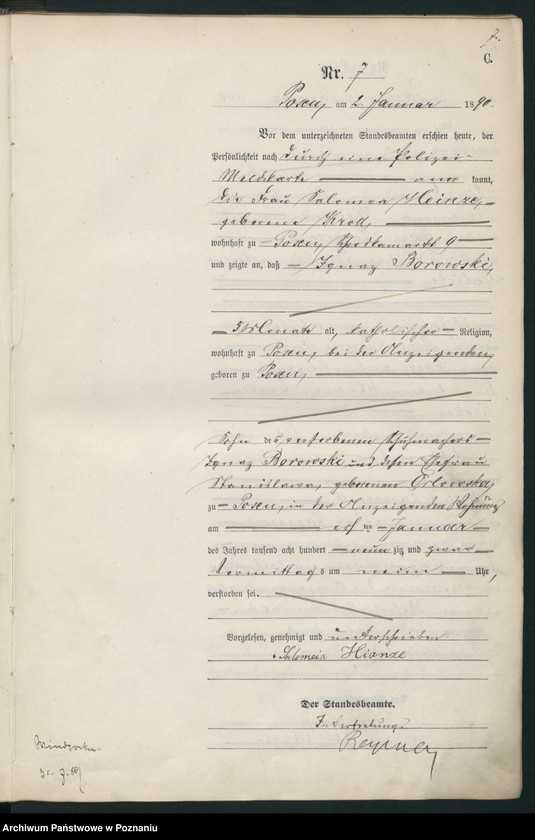 7.
C.
Nr. 7
Posen, am 2. Januar 1890.
Vor dem unterzeichneten Standesbeamten erschien heute, der
Persönlichkeit nach durch eine Polizei-
Meldekarte — aner kannt,
die Frau Salomea Heinze,
geborene Kroll, —
wohnhaft zu — Posen, 9 —
und zeigte an, daß — Ignaz Borowski,
— 5 Monate alt, katholischer — Religion,
wohnhaft zu Posen, bei der Anzeigenden,
geboren zu Posen, —
Sohn des verstorbenen Schuhmachers —
Ignaz Borowski und dessen Ehefrau
Stanislawa, geborenen Orlowska,
zu — Posen, in der Anzeigenden Wohnung
am — ersten — Januar —
des Jahres tausend acht hundert — neun zig und zwar —
Vormittags um — neun — Uhr,
verstorben sei. —
Vorgelesen, genehmigt und unterschrieben
Salomeia Hianze
Der Standesbeamte.
In Vertretung.
Archiwum Państwowe w Poznaniu